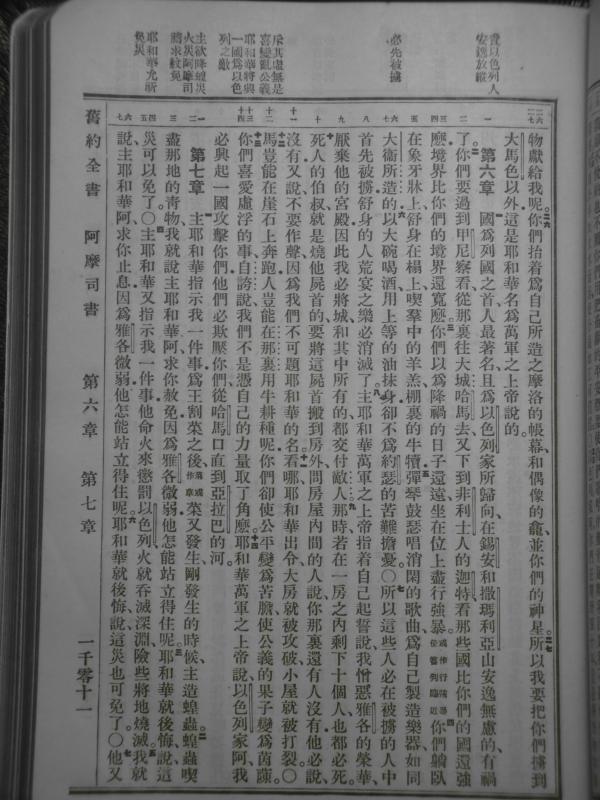 責以色列人
安逸放縱
必先被擄
斥其虛無是
喜變亂公義
耶和華將興
一國為以色
列之敵
主欲降蝗災
火災阿摩司
禱求赦免
耶和華允所
免災
物獻給我呢你們抬着爲自己所造之摩洛的帳幕和偶像的龕並你們的神星所以我要把你們擄到
大馬色以外這是耶和華名爲萬軍之上帝說的
第六章 國爲列國之首人最著名且爲以色列家所歸向在錫安和撒瑪利亞山安逸無慮的有禍
了你們要過到甲尼察看從那裏往大城哈馬去又下到非利士人的迦特看那些國比你們的國還強
麽境界比你們的境界還寬麽你們以爲降禍的日子還遠坐在位上盡行強暴你們躺臥
在象牙牀上舒身在榻上喫羣中的羊羔棚裏的牛犢彈琴鼓瑟唱消閑的歌曲爲自己製造樂器如同
大衞所造的以大碗喝酒用上等的油抹身卻不爲約瑟的苦難擔憂〇所以這些人必在被擄的人中
首先被擄舒身的人荒宴之樂必消滅了主耶和華萬軍之上帝指着自己起誓說我憎惡雅各的榮華
厭棄他的宮殿因此我必將城和其中所有的都交付敵人那時若在一房之內剩下十個人也都必死
死人的伯叔就是燒他屍首的要將這屍首搬到房外問房屋內間的人說你那裏還有人沒有他必說
沒有又說不要作聲因爲我們不可題耶和華的名看哪耶和華出令大房就被攻破小屋就被打裂〇
馬豈能在崖石上奔跑人豈能在那裏用牛耕種呢你們卻使公平變爲苦膽使公義的果子變爲茵蔯
你們喜愛虛浮的事自誇說我們不是憑自己的力量取了角麽耶和華萬軍之上帝說以色列家阿我
必興起一國攻擊你們他們必欺壓你們從哈馬口直到亞拉巴的河
第七章 主耶和華指示我一件事爲王割菜之後菜又發生剛發生的時候主造蝗蟲蝗蟲喫
盡那地的青物我就說主耶和華阿求你赦免因爲雅各微弱他怎能站立得住呢耶和華就後悔說這
災可以免了〇主耶和華又指示我一件事他命火來懲罰以色列火就吞滅深淵險些將地燒滅我就
說主耶和華阿求你止息因爲雅各微弱他怎能站立得住呢耶和華就後悔說這災也可免了〇他又
舊約全書 阿摩司書 第六章 第七章 一千零十一